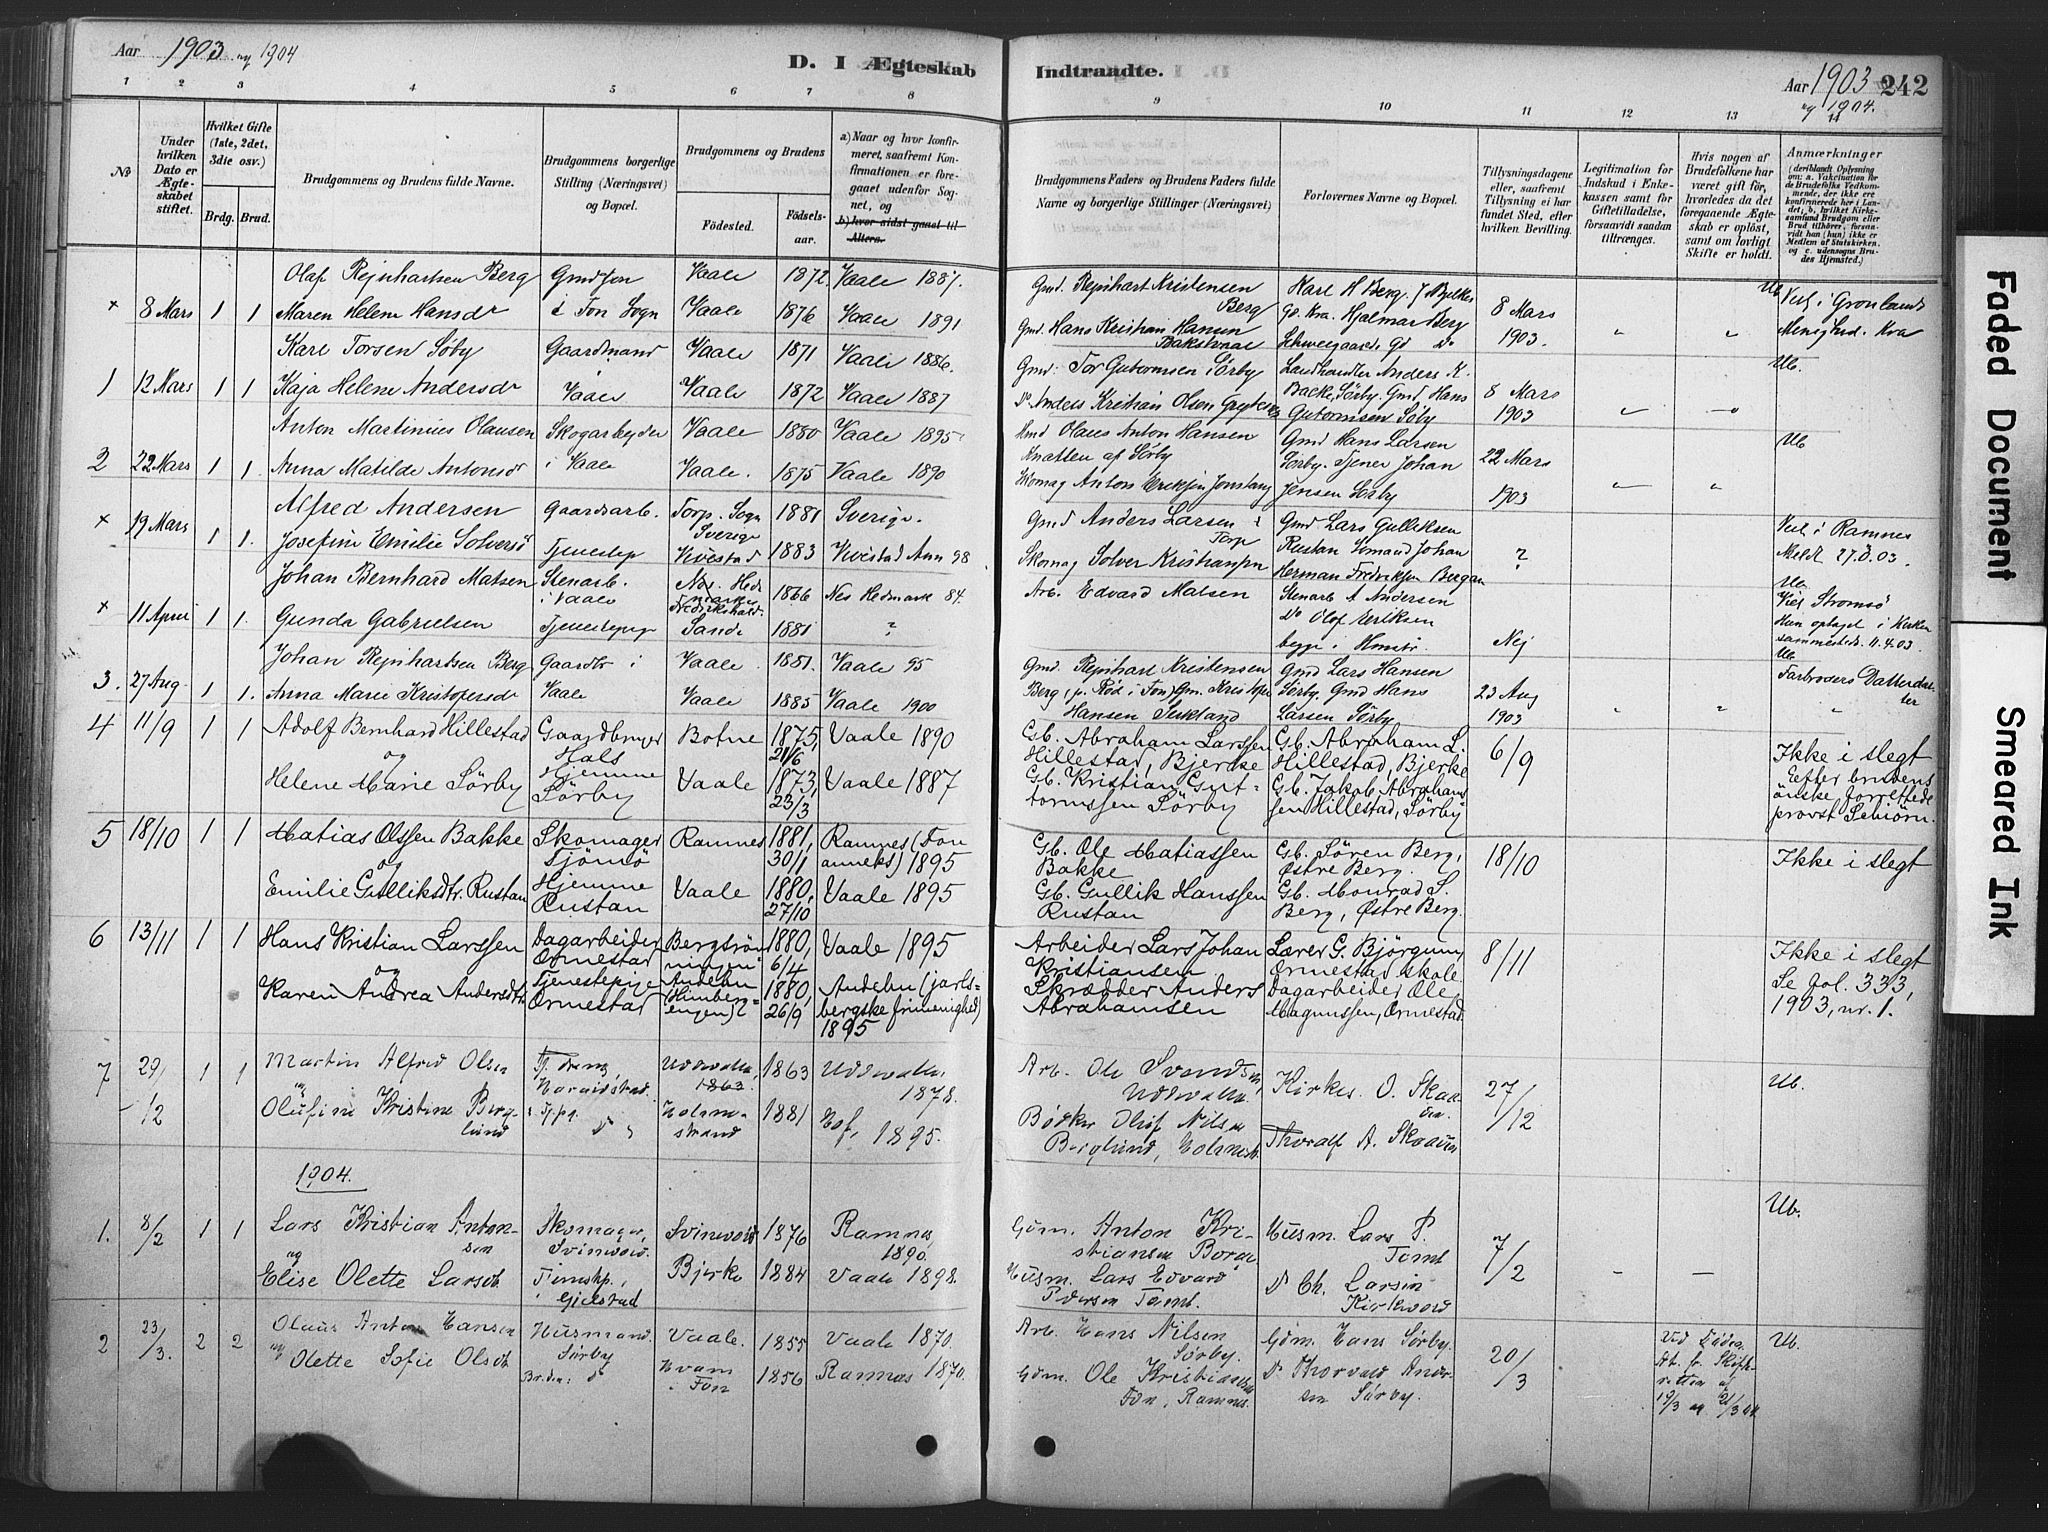 Aar 1903 og 1904
D. I Ægteskab
Indtraadte.
Aar 1903 242
og 1904.
1 2 3 4 5 6 7 8 9 10 11 12 13 14
No
Under hvilken Dato er Ægteskabet stiftet.
Hvilket Gifte (1ste, 2det, 3die osv.)
Brdg. Brud.
Brudgommens og Brudens fulde Navne.
Brudgommens borgerlige Stilling (Næringsvei) og Bopæl.
Brudgommens og Brudens
Fødested.
Fødselsaar.
a) Naar og hvor konfirmeret, saafremt Konfirmationen er foregaaet udenfor Sognet, og
b) hvor sidst gaaet til Alters.
Brudgommens Faders og Brudens Faders fulde Navne og borgerlige Stillinger (Næringsvei)
Forlovernes Navne og Bopæl.
Tillysningsdagene eller, saafremt Tillysning ei har fundet Sted, efter hvilken Bevilling.
Legitimation for Indskud i Enkekassen samt for Giftetilladelse, forsaavidt saadan tiltrænges.
Hvis nogen af Brudefolkene har været gift før, hvorledes da det foregaaende Ægteskab er opløst, samt om lovligt Skifte er holdt.
Anmærkninger
(deriblandt Oplysning om: a. Vakcination for de Brudefolks Vedkommende, der ikke ere konfirmerede her i Landet; b. hvilket Kirkesamfund Brudgom eller Brud tilhører, forsaavidt han (hun) ikke er Medlem af Statskirken, og c. udensogns Brudes Hjemsted.)
Olaf Rejnhartsen Berg Gmd Fon Vaale 1872 Vaale 1887. Gmd. Rejnhart Kristensen Berg
× 8 Mars 1 1 Maren Helene Hansdr i Fon Sogn Vaale 1876 Vaale 1891 Gmd. Hans Kristian Hansen
Karl H Berg
Hjalmar Berg
8 Mars 1903. " "
Ub Viet i Grønlands Menighed. Kra
Karl Torsen Søby Gaardmand Vaale 1871 Vaale 1886. Gmd: Tor Gutormsen Sørby Landhandler Anders K.
1 12 Mars 1 1 Kaja Helene Andersdr Vaale Vaale 1872 Vaale 1887 Do Anders Kristian Olsen Backe, Sørby. Gmd Hans Gutormsen Søby 8 Mars 1903 Ub.
Anton Martinius Olausen Skogarbejder Vaale 1880 Vaale 1895 Hmd Olaus Anton Hansen Knatten af Sørby Gmd Hans Larsen
2 22 Mars 1 1. Anna Matilde Antonsdr i Vaale Vaale. 1875 Vaale 1890 Skomag Anton Eriksen Sørby. Tjener Johan Jensen Sørby 22 Mars 1903 Ub
Alfred Andersen Gaardsarb. Torp. Sogn Sverige 1881 Sverige. Gmd Anders Larsen Torp Gmd Lars Gulliksen
× 19 Mars 1 1. Josefine Emilie Solversdr Tjenestep Hvivestad 1883 Hvivestad Ann 98 Skomag Solver Kristiansen Rustan Sømand Johan Herman Fredriksen Bergan ? Viet i Ramnes Meldt 27.3.03.
Johan Bernhard Matsen Stenarb. i Vaale 1866 Nes Hedmark 84. Arb. Edvard Matsen Stenarb A Andersen
× 11 April 1 1. Gunda Gabrielsen Tjenestepige Sande 1881 ? Do Olaf Eriksen begge i Nej
Ub Viet Strømsø Hun optaget i Kirken sammesteds 11.4.03.
Johan Rejnhardsen Berg Gaardbr i Vaale 1881. Vaale 95 Gmd. Rejnhart Kristensen Gmd Lars Hansen Ub
3. 27 Aug 1 1. Anna Marie Kristofersdr Vaale Vaale 1885 Vaale 1900 Berg, p. Rød i Fon) Gm. Kristofer Hansen Sørby, Gmd Hans Larsen Sørby 23 Aug 1903 Farbroders Datterdatter
4 11/9 1 1 Adolf Bernhard Hillestad Gaardbruger Hals Botne 1875, 21/6 Vaale 1890 Gb. Abraham Larssen Hillestad, Bjerke Gb. Abraham L. Hillestad, Bjerke 6/9 Ikke i slegt
og
Helene Marie Sørby Hjemme Sørby Vaale 1873, 23/3 Vaale 1887 Gb. Kristian Guttormssen Sørby Gb. Jakob Abrahamssen Hillestad, Sørby Efter brudens ønske forrettede provst Sebjörn.
5 18/10 1 1 Matias Olssen Bakke Skomager Tjömö Ramnes 1881, 30/1 Ramnes (Fon anneks) 1895 Gb. Ole Matiassen Bakke Gb. Sören Berg, Østre Berg. 18/10 Ikke i slegt
og
Emilie Gulliksdtr. Rustan Hjemme Rustan Vaale 1880, 27/10 Vaale 1895 Gb. Gullik Hanssen Rustan Gb. Monrad S. Berg, Østre Berg.
6 13/11 1 1 Hans Kristian Larssen Dagarbeider Ørmestad 1880, 6/4 Vaale 1895 Arbeider Lars Johan Kristiansen Lærer G. Björgum, Ørmestad skole 8/11 Ikke i slegt
og
Karen Andrea Andersdtr. Tjenestepige Ørmestad Andebu 1880, 26/9 Andebu (jarlsbergske frimenighed) 1895 Skrædder Anders Abrahamsen Dagarbeider Ole Magnussen, Ørmestad Se fol. 333, 1903, nr. 1.
7 29/12 1 1 Martin Alfred Olsen Uddevalla, 1863 1863 Uddevalla 1878. Arb. Ole Svendsen, Uddevalla Kirkes. O. Skaaden 27/12 Ub.
og
Olufine Kristine Berglund Holmestrand 1881 Hof, 1895. Bødker Oluf Nilsen Berglund, Holmestr. Thoralf A. Skaaden
1904.
1. 8/2 1 1 Lars Kristian Antonsen Skomager, Svinevold. Svinevold 1876 Ramnes 1890. Gdm. Anton Kristiansen Borge Husm. Lars P. Tømt 7/2 Ub.
og
Elise Olette Larsdt. Tjenstp. i Gjelstad Bjerke 1884 Vaale 1898. Husm. Lars Edvard Pedersen Tømt. Do Ch. Larsen Kirkevold - —
2 23/3. 2 2 Olaus Anton Hansen Husmand. Sørby Vaale. 1855 Vaale 1870. Arb. Hans Nilsen Sørby. Gdm. Hans Sørby. 20/3 Ub.
og Olette Sofie Olsdt. Bruden: do Hvam i Fon 1856 Ramnes 1870. Gdm. Ole Kristiansen Fon, Ramnes. Do Thorvald Andersen Sørby. Ved Døden. At. fr. Skifteretten af 19/3 og 21/3 04.
Faded Document
Smeared Ink